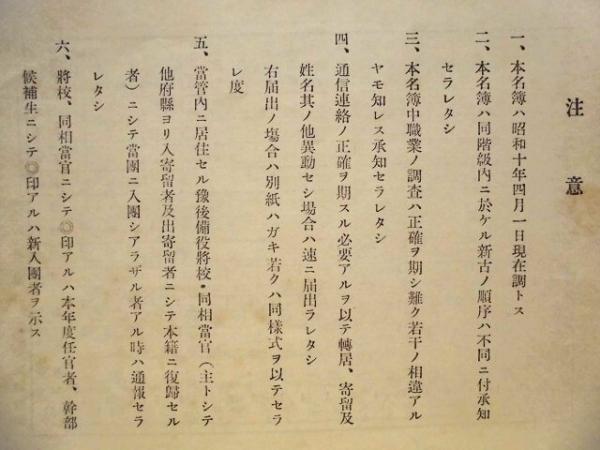 注意
一、本名簿ハ昭和十年四月一日現在調トス
二、本名簿ハ同階級内ニ於ケル新古ノ順序ハ不同ニ付承知
セラレタシ
三、本名簿中職業ノ調査ハ正確ヲ期シ難ク若干ノ相違アル
ヤモ知レス承知セラレタシ
四、通信連絡ノ正確ヲ期スル必要アルヲ以テ轉居、寄留及
姓名其ノ他異動セシ場合ハ速ニ届出ラレタシ
右届出ノ場合ハ別紙ハガキ若クハ同樣式ヲ以テセラ
レ度
五、當管内ニ居住セル豫後備役將校・同相當官（主トシテ
他府縣ヨリ入寄留者及出寄留者ニシテ本籍ニ復歸セル
者）ニシテ當團ニ入團シアラザル者アル時ハ通報セラ
レタシ
六、將校、同相當官ニシテ◎印アルハ本年度任官者、幹部
候補生ニシテ◎印アルハ新入團者ヲ示ス